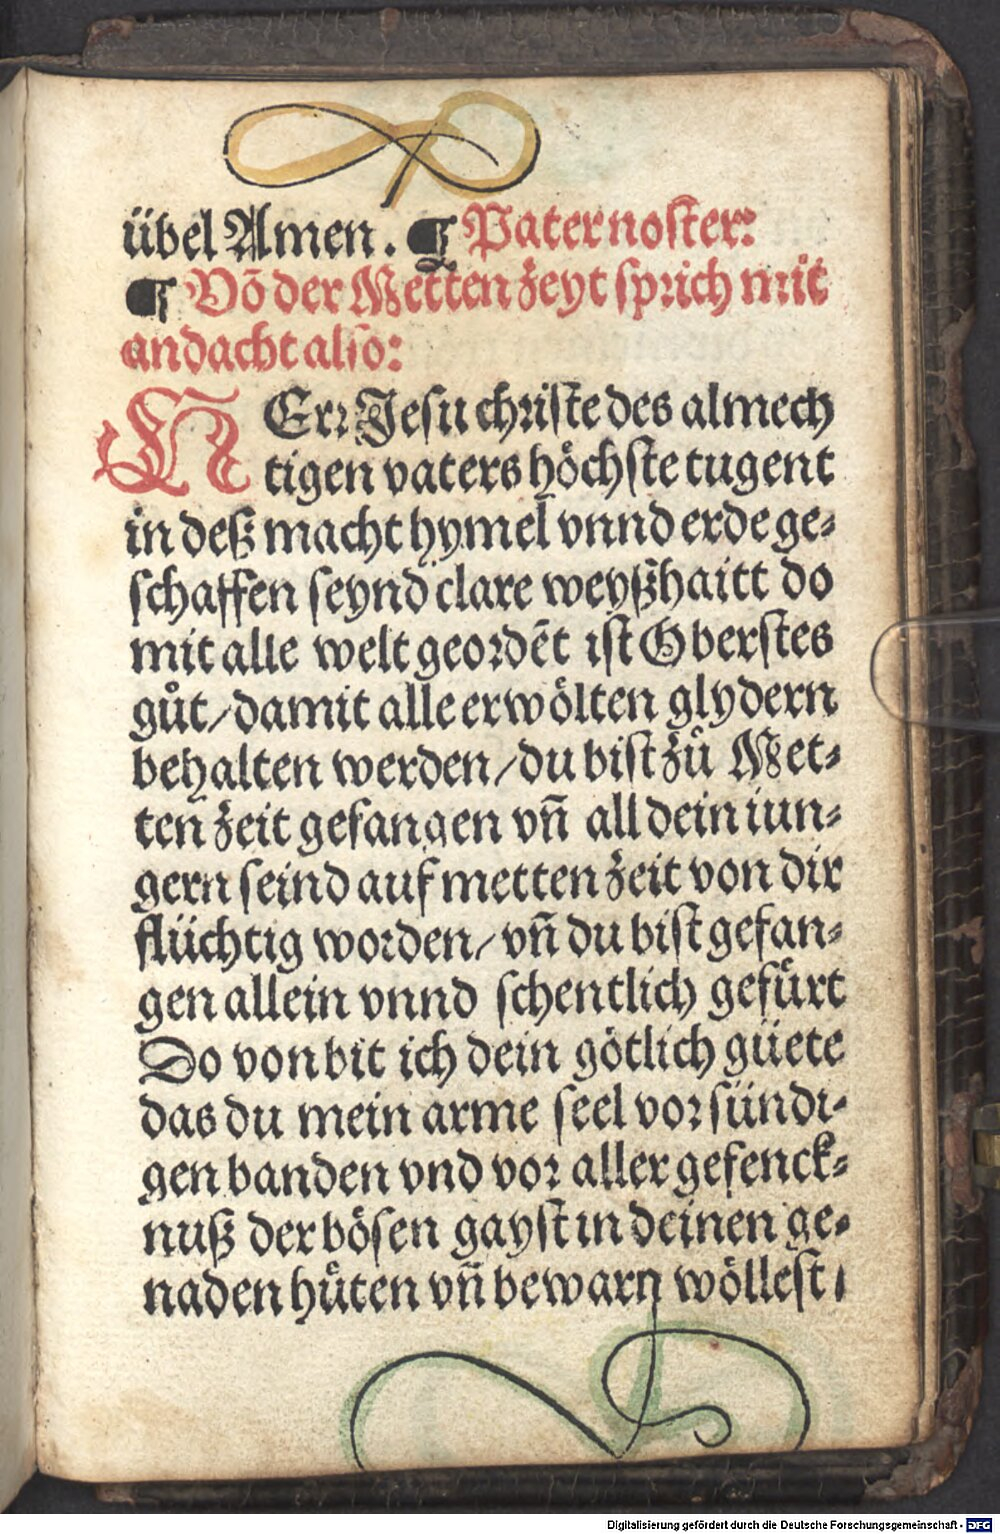 übel Amen. ¶ Pater noster:
¶ Võ der Metten zeyt sprich mit
andacht also:
HErr Jesu christe des almech
tigen vaters höchste tugent
in deß macht hymel vnnd erde ge⸗
schaffen seynd clare weyßhaitt do
mit alle welt geordẽt ist Oberstes
gůt/damit alle erwölten glydern
behalten werden/du bist zů Met⸗
ten zeit gefangen vñ all dein iun⸗
gern seind auf metten zeit von dir
flüchtig worden/vñ du bist gefan⸗
gen allein vnnd schentlich gefürt
Do von bit ich dein götlich güete
das du mein arme seel vor sündi⸗
gen banden vnd vor aller gefenck⸗
nuß der bösen gayst in deinen ge⸗
naden hüten vñ bewarn wöllest /
Digitalisierung gefördert durch die Deutsche Forschungsgemeinschaft - DFG